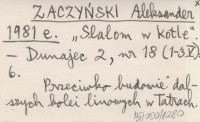 ZACZYŃSKI Aleksander
1981 e. "Slalom w kotle".
– Dunajec 2, nr 18 (1-3.V)
6.
Przeciwko budowie dal-
szych kolei linowych w Tatrach.